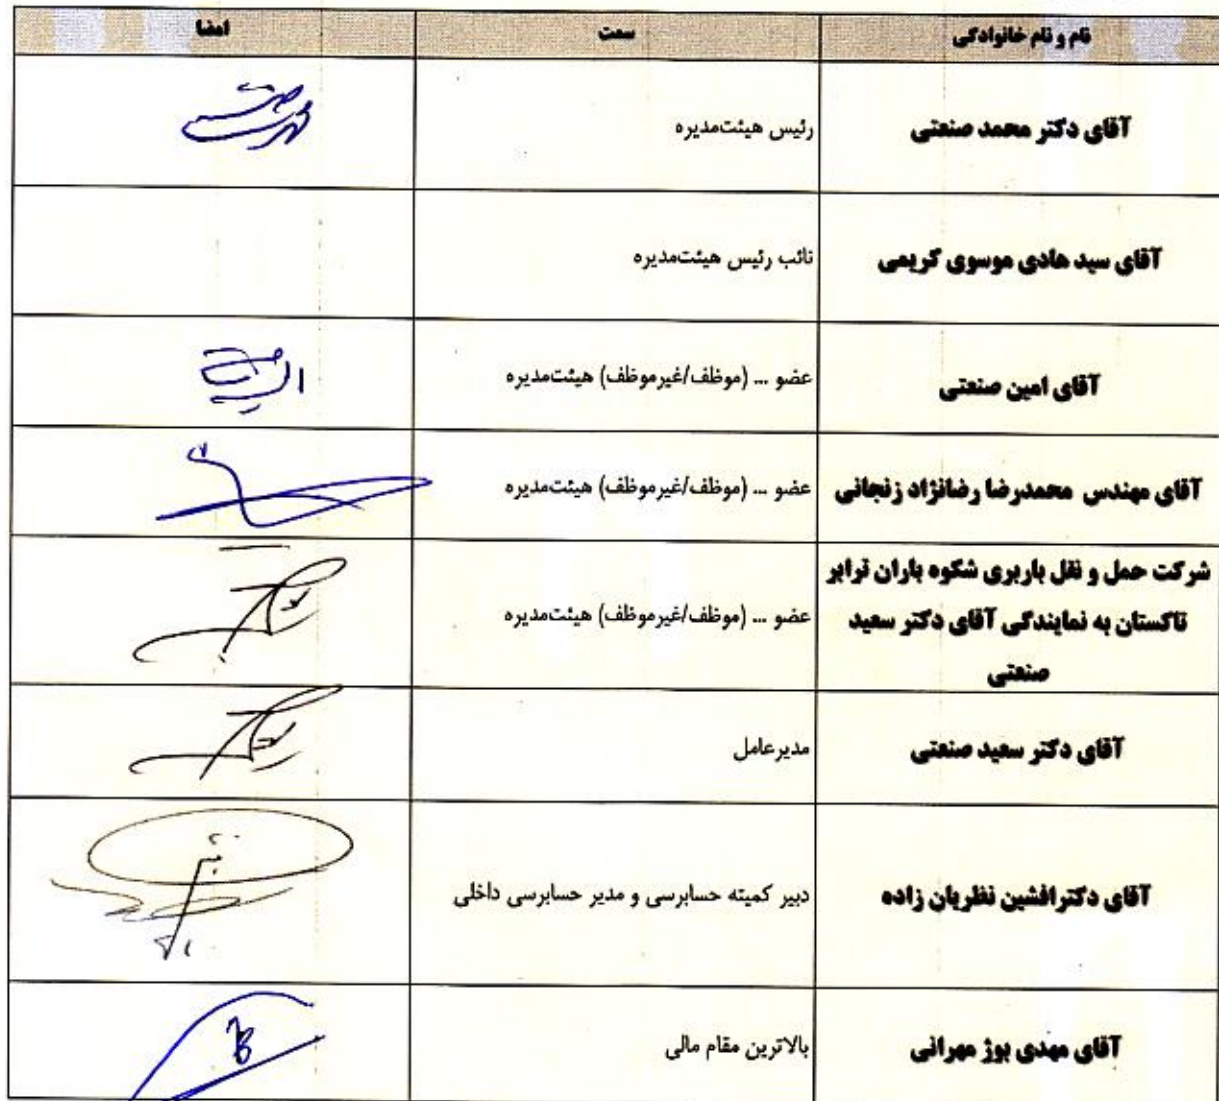 نام و نام خانوادگی سمت امضا
آقای دکتر محمد صنعتی رئیس هیئت‌مدیره
آقای سید هادی موسوی کریمی نائب رئیس هیئت‌مدیره
آقای امین صنعتی عضو ... (موظف/غیرموظف) هیئت‌مدیره
آقای مهندس محمدرضا رضانژاد زنجانی عضو ... (موظف/غیرموظف) هیئت‌مدیره
شرکت حمل و نقل باربری شکوه باران ترابر
تاکستان به نمایندگی آقای دکتر سعید
صنعتی
عضو ... (موظف/غیرموظف) هیئت‌مدیره
آقای دکتر سعید صنعتی مدیرعامل
آقای دکترافشین نظریان زاده دبیر کمیته حسابرسی و مدیر حسابرسی داخلی
آقای مهدی بوژ مهرانی بالاترین مقام مالی